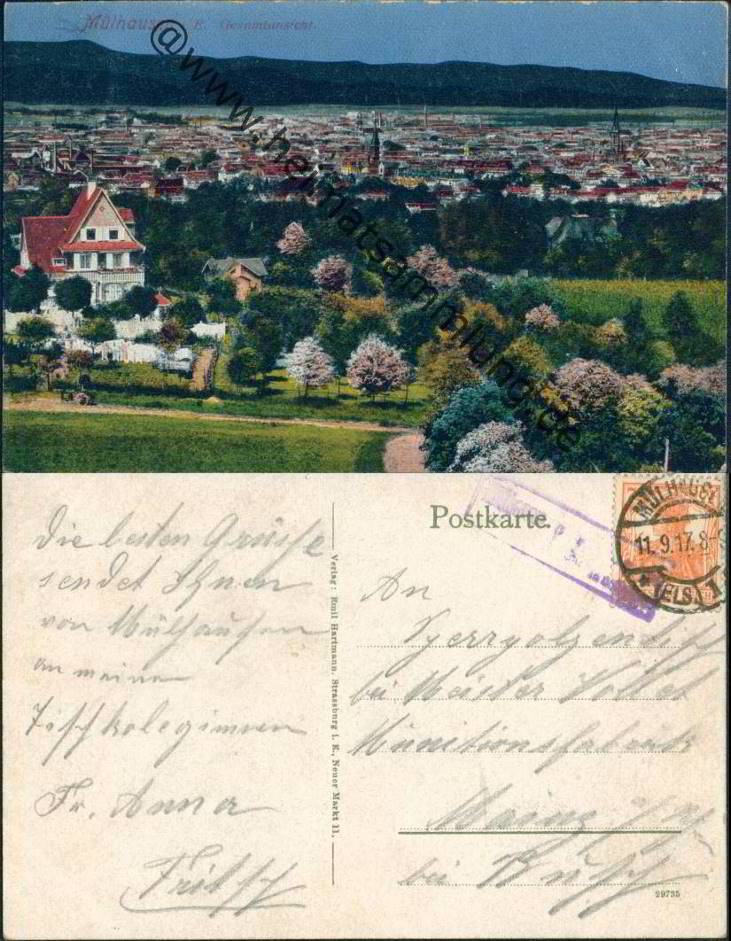 Mülhausen i. E. Gesamtansicht.
@www.heimatsammlung.de
Postkarte.
MÜLHAUSEN
11. 9. 17. 8-9
* (ELS.) 1
Die besten Grüsse
sendet Ihnen
von Mülhausen
an meine
Tischkoleginnen
Fr. Anna
Fritsch
Verlag: Emil Hartmann, Strassburg i. E., Neuer Markt 11.
An
bei Meister
Munitionsfabrik
Mainz
bei
29735